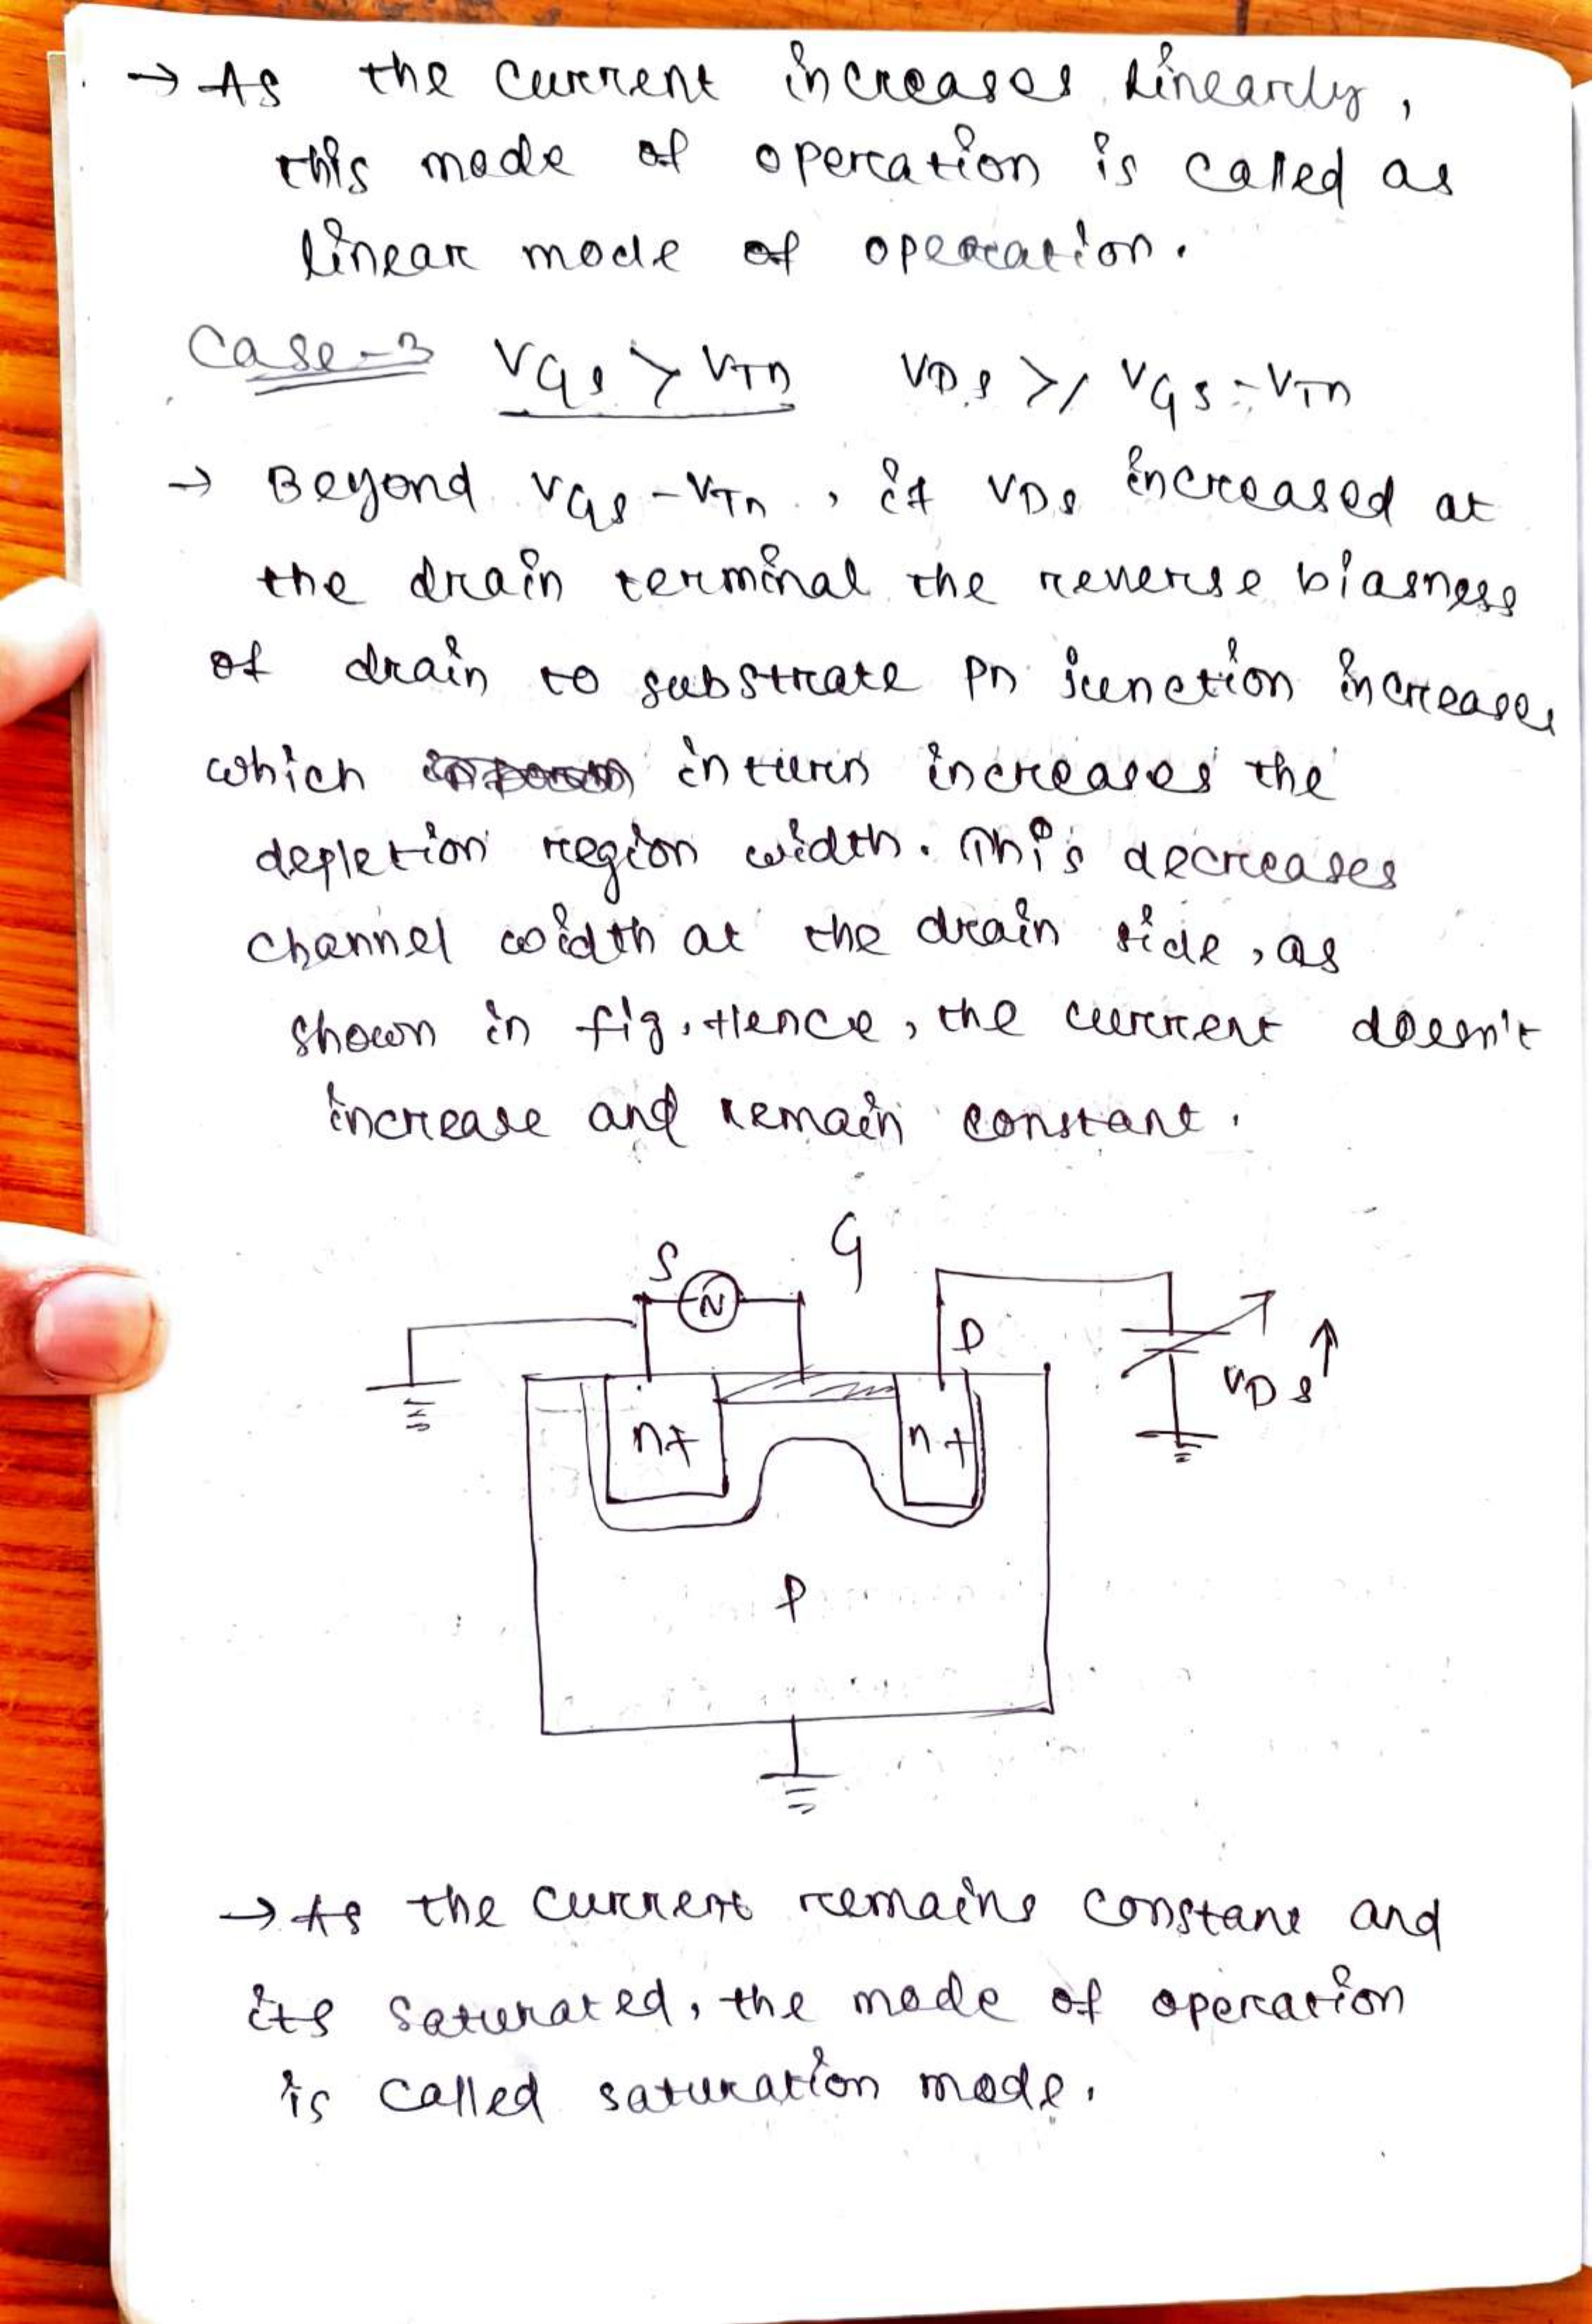 → As the current increases linearly,
this mode of operation is called as
linear mode of operation.
Case-3 VGS > VTn VDS >/ VGS - VTn
→ Beyond VGS - VTn, if VDS increased at
the drain terminal the reverse biasness
of drain to substrate Pn junction increases
which inturn increases the
depletion region width. This decreases
channel width at the drain side, as
shown in fig. Hence, the current doesn't
increase and remain constant.
G
S
N
D
VDS ↑
n+ n+
P
→ As the current remains constant and
its saturated, the mode of operation
is called saturation mode.